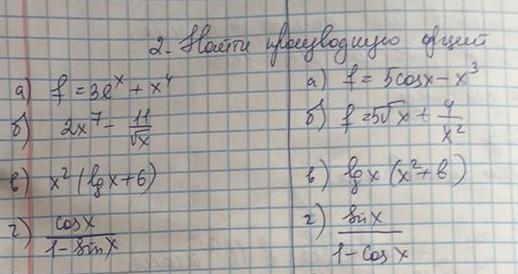 2. Найти производную функций
а) f = 3e^x + x^4
б) 2x^7 - 11/√x
в) x^2 (lg x + 6)
г) cos x / 1 - sin x
а) f = 5cos x - x^3
б) f = 5√x + 4/x^2
в) lg x (x^2 + 6)
г) sin x / 1 - cos x